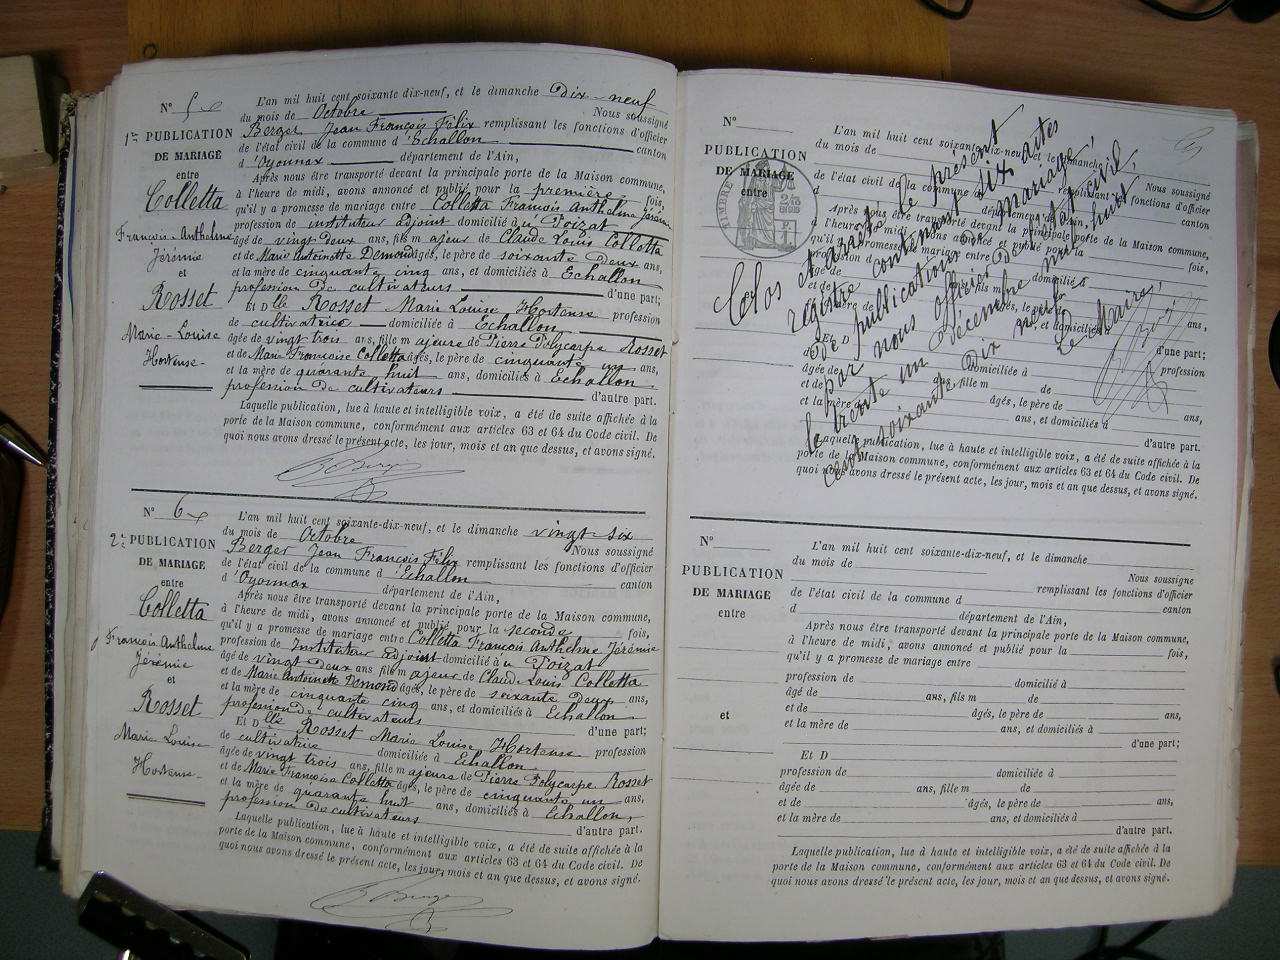 N° 5
1re PUBLICATION
DE MARIAGE
entre
Colletta
François-Anthelme
Jérémie
et
Rosset
Marie-Louise
Hortense
L'an mil huit cent soixante dix-neuf, et le dimanche Dix-neuf
du mois de Octobre Nous soussigné
Berger Jean François Félix remplissant les fonctions d'officier
de l'état civil de la commune d'Echallon canton
d'Oyonnax département de l'Ain,
Après nous être transporté devant la principale porte de la Maison commune,
à l'heure de midi, avons annoncé et publié pour la première fois,
qu'il y a promesse de mariage entre Colletta François Anthelme Jérémie
profession de instituteur adjoint domicilié au Poizat
âgé de vingt deux ans, fils majeur de Claude Louis Colletta
et de Marie Antoinette Demond âgés, le père de soixante deux ans,
et la mère de cinquante cinq ans, et domiciliés à Echallon
profession de cultivateurs d'une part;
Et Dlle Rosset Marie Louise Hortense profession
de cultivatrice domiciliée à Echallon
âgée de vingt trois ans, fille majeure de Pierre Polycarpe Rosset
et de Marie Françoise Colletta âgés, le père de cinquante un ans,
et la mère de quarante huit ans, domiciliés à Echallon
profession de cultivateurs d'autre part.
Laquelle publication, lue à haute et intelligible voix, a été de suite affichée à la
porte de la Maison commune, conformément aux articles 63 et 64 du Code civil. De
quoi nous avons dressé le présent acte, les jour, mois et an que dessus, et avons signé.
Berger
N° 6
2e PUBLICATION
DE MARIAGE
entre
Colletta
François Anthelme
Jérémie
et
Rosset
Marie Louise
Hortense
L'an mil huit cent soixante-dix-neuf, et le dimanche vingt-six
du mois de Octobre Nous soussigné
Berger Jean François Félix remplissant les fonctions d'officier
de l'état civil de la commune d'Echallon canton
d'Oyonnax département de l'Ain,
Après nous être transporté devant la principale porte de la Maison commune,
à l'heure de midi, avons annoncé et publié pour la seconde fois,
qu'il y a promesse de mariage entre Colletta François Anthelme Jérémie
profession de Instituteur adjoint domicilié au Poizat
âgé de vingt Deux ans fils majeur de Claude Louis Colletta
et de Marie Antoinette Demond âgés, le père de soixante deux ans,
et la mère de cinquante cinq ans, et domiciliés à Echallon
profession de cultivateurs d'une part;
Et Dlle Rosset Marie Louise Hortense profession
de cultivatrice domiciliée à Echallon
âgée de vingt trois ans, fille majeure de Pierre Polycarpe Rosset
et de Marie Françoise Colletta âgés, le père de cinquante un ans,
et la mère de quarante huit ans, domiciliés à Echallon,
profession de cultivateurs d'autre part.
Laquelle publication, lue à haute et intelligible voix, a été de suite affichée à la
porte de la Maison commune, conformément aux articles 63 et 64 du Code civil. De
quoi nous avons dressé le présent acte, les jour, mois et an que dessus, et avons signé.
Berger
N°
PUBLICATION
DE MARIAGE
entre
TIMBRE
L'an mil huit cent soixante-dix-neuf, et le dimanche
du mois de Nous soussigné
remplissant les fonctions d'officier
de l'état civil de la commune d canton
d département de l'Ain,
Après nous être transporté devant la principale porte de la Maison commune,
à l'heure de midi, avons annoncé et publié pour la fois,
qu'il y a promesse de mariage entre
profession de domicilié à
âgé de ans, fils m de
et de âgés, le père de ans,
et la mère de ans, et domiciliés à
d'une part;
Et D profession
de domiciliée à
âgée de ans, fille m de
et de âgés, le père de ans,
et la mère ans, et domiciliés à
d'autre part.
Laquelle publication, lue à haute et intelligible voix, a été de suite affichée à la
porte de la Maison commune, conformément aux articles 63 et 64 du Code civil. De
quoi nous avons dressé le présent acte, les jour, mois et an que dessus, et avons signé.
Clos et arrêté le présent
registre contenant six actes
de publications de mariage,
par nous officier de l'état civil,
le trente un décembre mil huit
cent soixante Dix neuf
Le Maire,
N°
PUBLICATION
DE MARIAGE
entre
et
L'an mil huit cent soixante-dix-neuf, et le dimanche
du mois de
Nous soussigné
remplissant les fonctions d'officier
de l'état civil de la commune d canton
d département de l'Ain,
Après nous être transporté devant la principale porte de la Maison commune,
à l'heure de midi, avons annoncé et publié pour la fois,
qu'il y a promesse de mariage entre
profession de domicilié à
âgé de ans, fils m de
et de âgés, le père de ans,
et la mère de ans, et domiciliés à
d'une part;
Et D
profession de domiciliée à
âgée de ans, fille m de
et de âgés, le père de ans,
et la mère de ans, et domiciliés à
d'autre part.
Laquelle publication, lue à haute et intelligible voix, a été de suite affichée à la
porte de la Maison commune, conformément aux articles 63 et 64 du Code civil. De
quoi nous avons dressé le présent acte, les jour, mois et an que dessus, et avons signé.